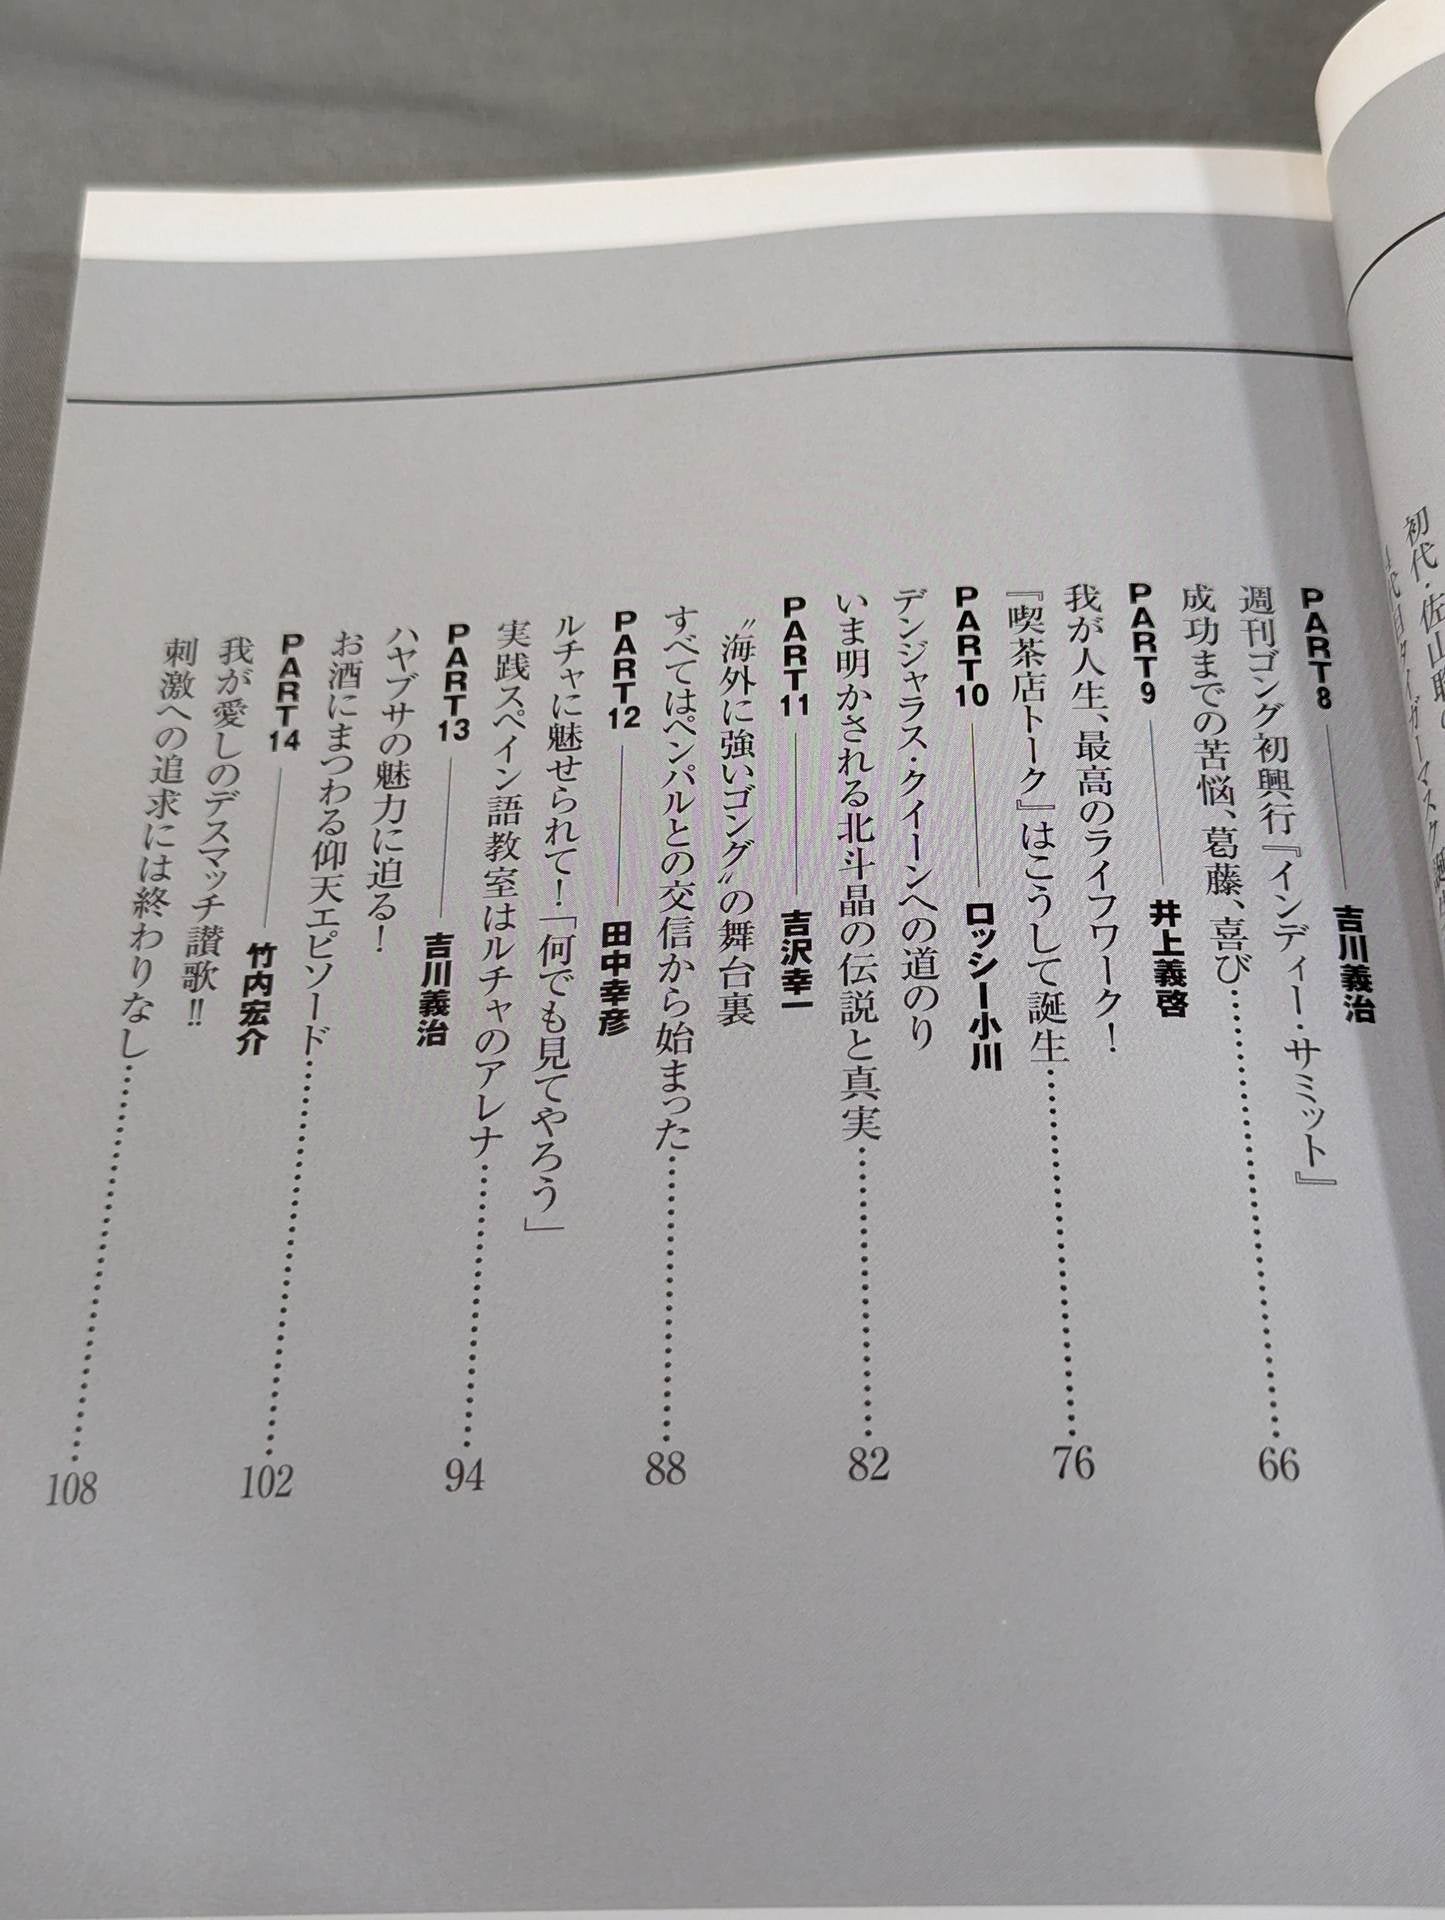 初代・佐山
PART8 吉川義治
週刊ゴング初興行『インディー・サミット』
成功までの苦悩、葛藤、喜び……………66
PART9 井上義啓
我が人生、最高のライフワーク！
『喫茶店トーク』はこうして誕生……………76
PART10 ロッシー小川
デンジャラス・クイーンへの道のり
いま明かされる北斗晶の伝説と真実……………82
PART11 吉沢幸一
〝海外に強いゴング〟の舞台裏
すべてはペンパルとの交信から始まった……………88
PART12 田中幸彦
ルチャに魅せられて！「何でも見てやろう」
実践スペイン語教室はルチャのアレナ……………94
PART13 吉川義治
ハヤブサの魅力に迫る！
お酒にまつわる仰天エピソード……………102
PART14 竹内宏介
我が愛しのデスマッチ讃歌!!
刺激への追求には終わりなし……………108